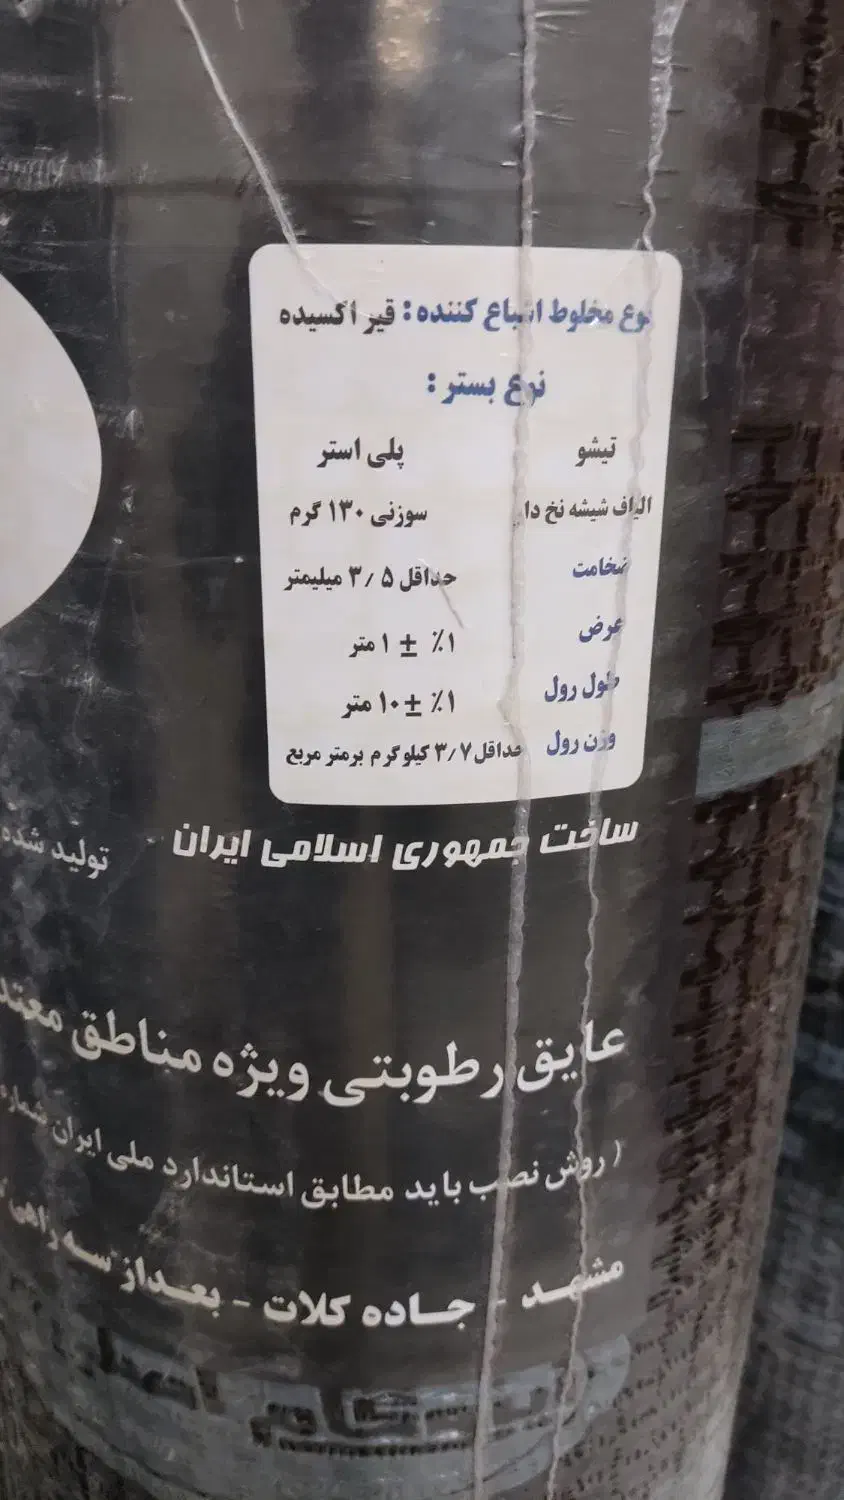 نوع مخلوط اشباع کننده : قیر اکسیده
نوع بستر :
تیشو پلی استر
الیاف شیشه نخ دار سوزنی ۱۳۰ گرم
ضخامت حداقل ۳٫۵ میلیمتر
عرض ۱٪ ± ۱ متر
طول رول ۱٪ ± ۱۰ متر
وزن رول حداقل ۳٫۷ کیلوگرم برمتر مربع
ساخت جمهوری اسلامی ایران
تولید شده
عایق رطوبتی ویژه مناطق
( روش نصب باید مطابق استاندارد ملی ایران شماره
مشهد - جاده کلات - بعداز سه راهی